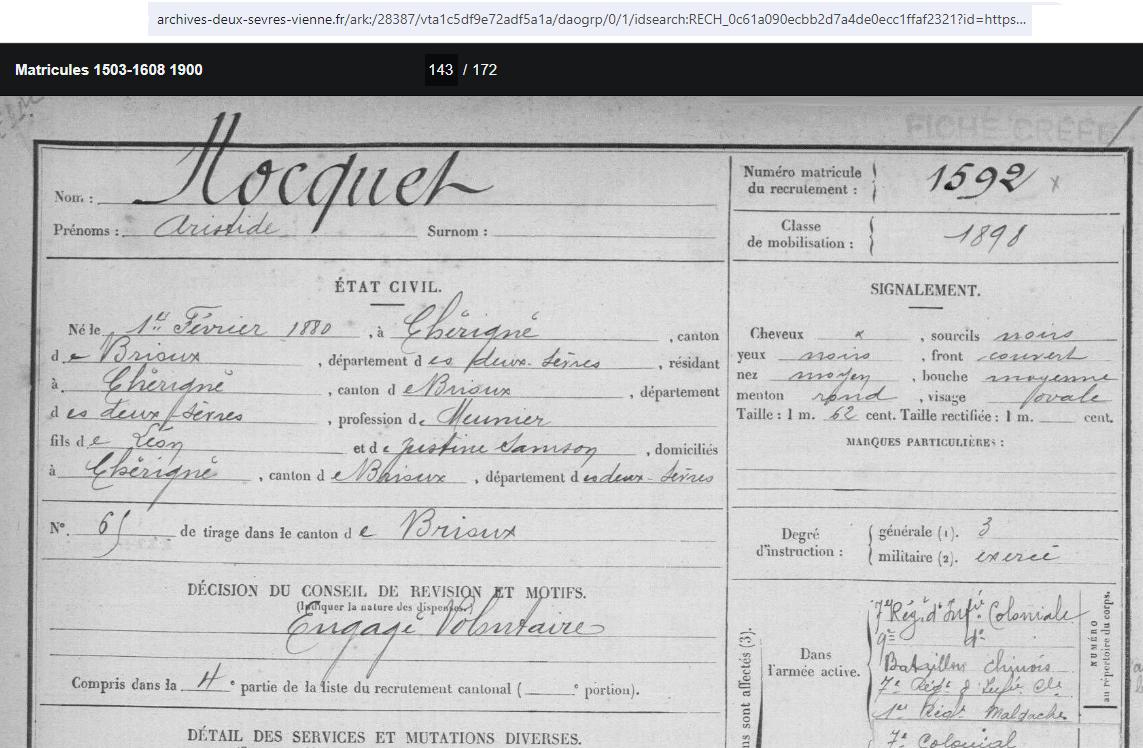 archives-deux-sevres-vienne.fr/ark:/28387/vta1c5df9e72adf5a1a/daogrp/0/1/idsearch:RECH_0c61a090ecbb2d7a4de0ecc1ffaf2321?id=https...
Matricules 1503-1608 1900
143 / 172
FICHE CRÉÉE
Nom : Hocquet
Prénoms : Aristide Surnom :
Numéro matricule
du recrutement : 1592 x
Classe
de mobilisation : 1898
ÉTAT CIVIL.
Né le 1er Février 1880, à Chérigné, canton
de Brioux, département des deux-Sèvres, résidant
à Chérigné, canton de Brioux, département
des deux-Sèvres, profession de Meunier
fils de Léon et de Justine Samson, domiciliés
à Chérigné, canton de Brioux, département des deux-Sèvres
N° 65 de tirage dans le canton de Brioux
DÉCISION DU CONSEIL DE REVISION ET MOTIFS.
(Indiquer la nature des dispenses.)
Engagé Volontaire
Compris dans la 4e partie de la liste du recrutement cantonal ( e portion).
DÉTAIL DES SERVICES ET MUTATIONS DIVERSES.
SIGNALEMENT.
Cheveux x, sourcils noirs
yeux noirs, front couvert
nez moyen, bouche moyenne
menton rond, visage ovale
Taille : 1 m. 62 cent. Taille rectifiée : 1 m. cent.
MARQUES PARTICULIÈRES :
Degré
d'instruction :
générale (1). 3
militaire (2). exercé
ns sont affectés (3).
Dans
l'armée active.
7e Rég. d'Infie Coloniale
9e do
Bataillon chinois
7e Régt d'Infie Cle
1er Régt Malgache
7e Colonial
NUMÉRO
au répertoire du corps.